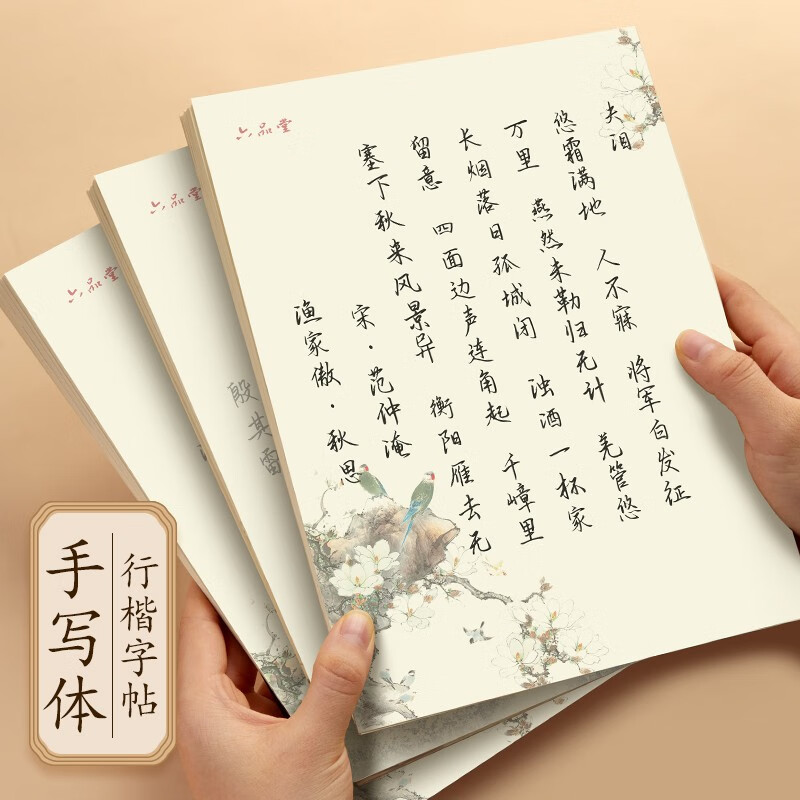 六品堂
渔家傲·秋思
宋·范仲淹
塞下秋来风景异 衡阳雁去无
留意 四面边声连角起 千嶂里
长烟落日孤城闭 浊酒一杯家
万里 燕然未勒归无计 羌管悠
悠霜满地 人不寐 将军白发征
夫泪
六品堂
殷其雷
六品堂
手写体
行楷字帖